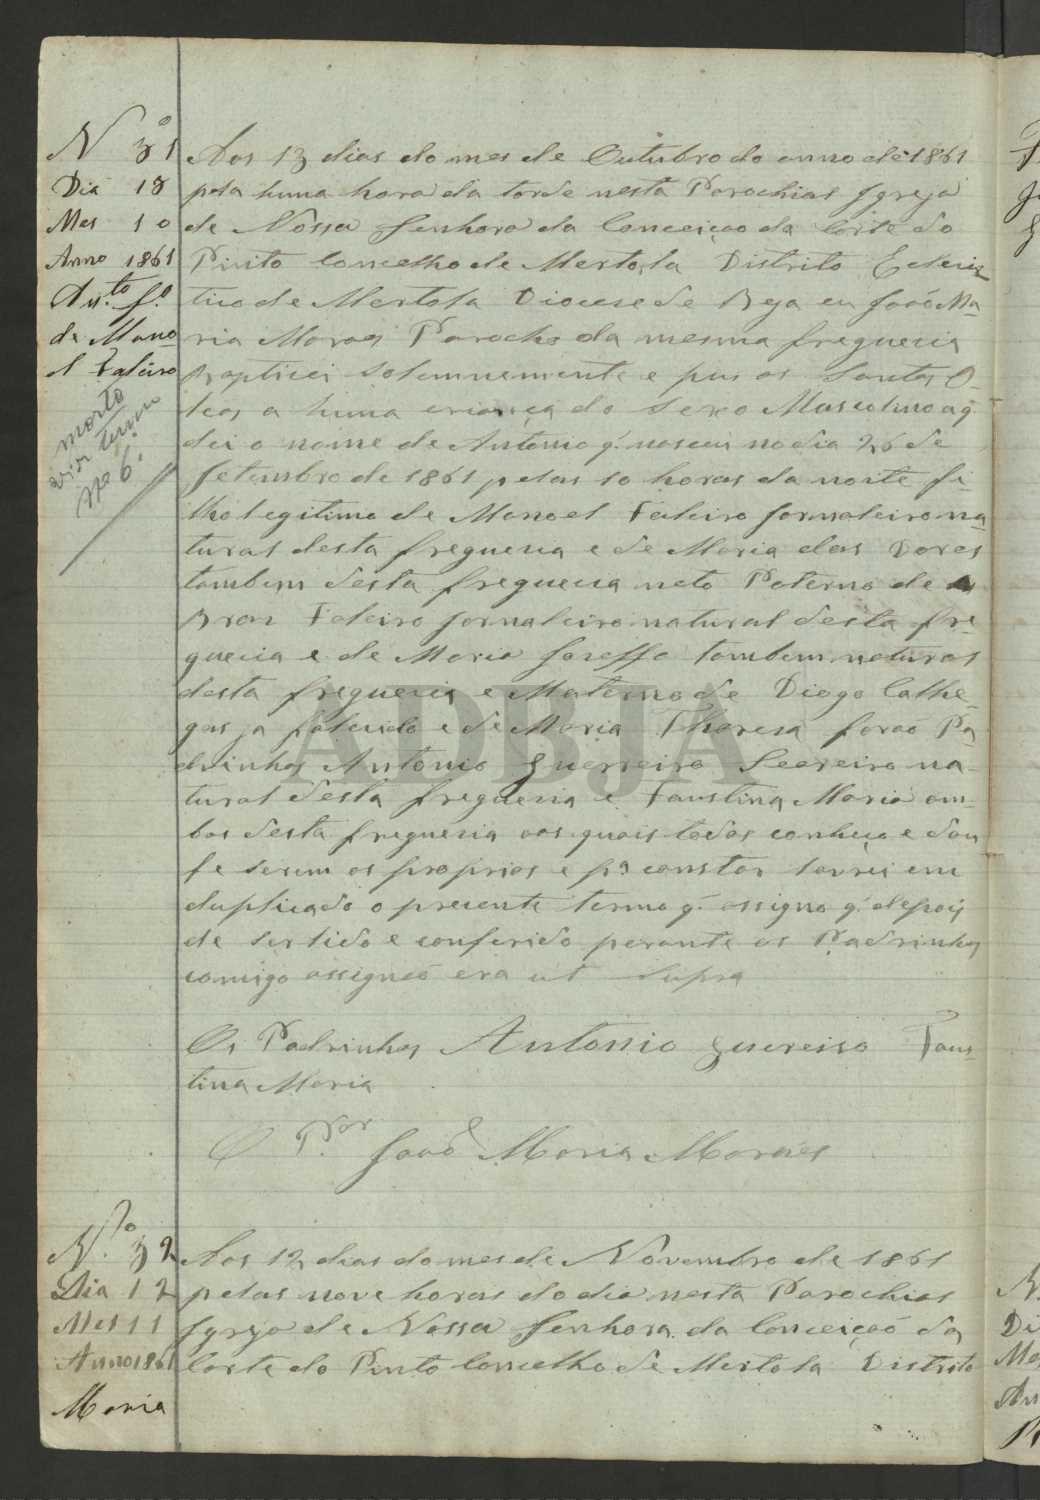 N.º 31
Dia 13
Mes 10
Anno 1861
Ant.to f.º
de Mano
el Faleiro
morto
vid termo
nº 6.
Aos 13 dias do mes de Outubro do anno de 1861
pela huma hora da tarde nesta Parochial Igreja
de Nossa Senhora da Conceiçao da Corte do
Pinto Concelho de Mertola Distrito Ecleriz
tico de Mertola Diocese de Beja eu Joaõ Ma
ria Moraes Parocho da mesma freguecia
Baptizei Solemnemente e pus os Santos O-
leos a huma criança do Sexo Masculino a q.
dei o nome de Antonio q. nasceu no dia 26 de
Setembro de 1861 pelas 10 horas da noite fi-
lho legitimo de Manoel Faleiro Jornaleiro na
tural desta freguecia e de Maria das Dores
tambem desta freguecia neto Paterno de
Braz Faleiro Jornaleiro natural desta fre-
guecia e de Maria Joseffa tambem natural
desta freguecia e Materno de Diogo Cathe-
gas ja falecido e de Maria Thereza foraõ Pa
drinhos Antonio Guerreiro Seereiro na
tural desta freguecia e Faustina Maria am-
bos desta freguecia aos quais todos conheço e dou
fe serem os proprios e pª constar lavrei em
duplicado o prezente termo q. assigno q. depois
de ser lido e conferido perante os Padrinhos
comigo assignaõ era ut Supra
Os Padrinhos Antonio guereiro Faus-
tina Maria
O P.or Joaõ Maria Moraes
N.º 32
Dia 12
Mes 11
Anno 1861
Maria
Aos 12 dias do mes de Novembro de 1861
pelas nove horas do dia nesta Parochial
Igreja de Nossa Senhora da Conceiçaõ da
Corte do Pinto Concelho de Mertola Distrito
ADBJA